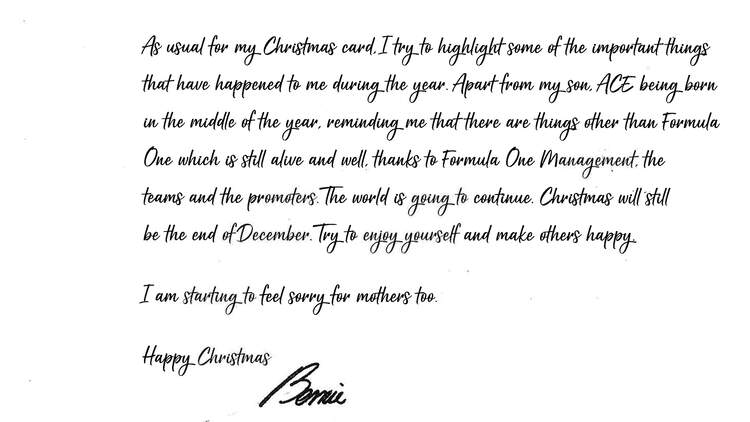 As usual for my Christmas card, I try to highlight some of the important things
that have happened to me during the year. Apart from my son, ACE being born
in the middle of the year, reminding me that there are things other than Formula
One which is still alive and well, thanks to Formula One Management, the
teams and the promoters. The world is going to continue. Christmas will still
be the end of December. Try to enjoy yourself and make others happy.
I am starting to feel sorry for mothers too.
Happy Christmas
Bernie